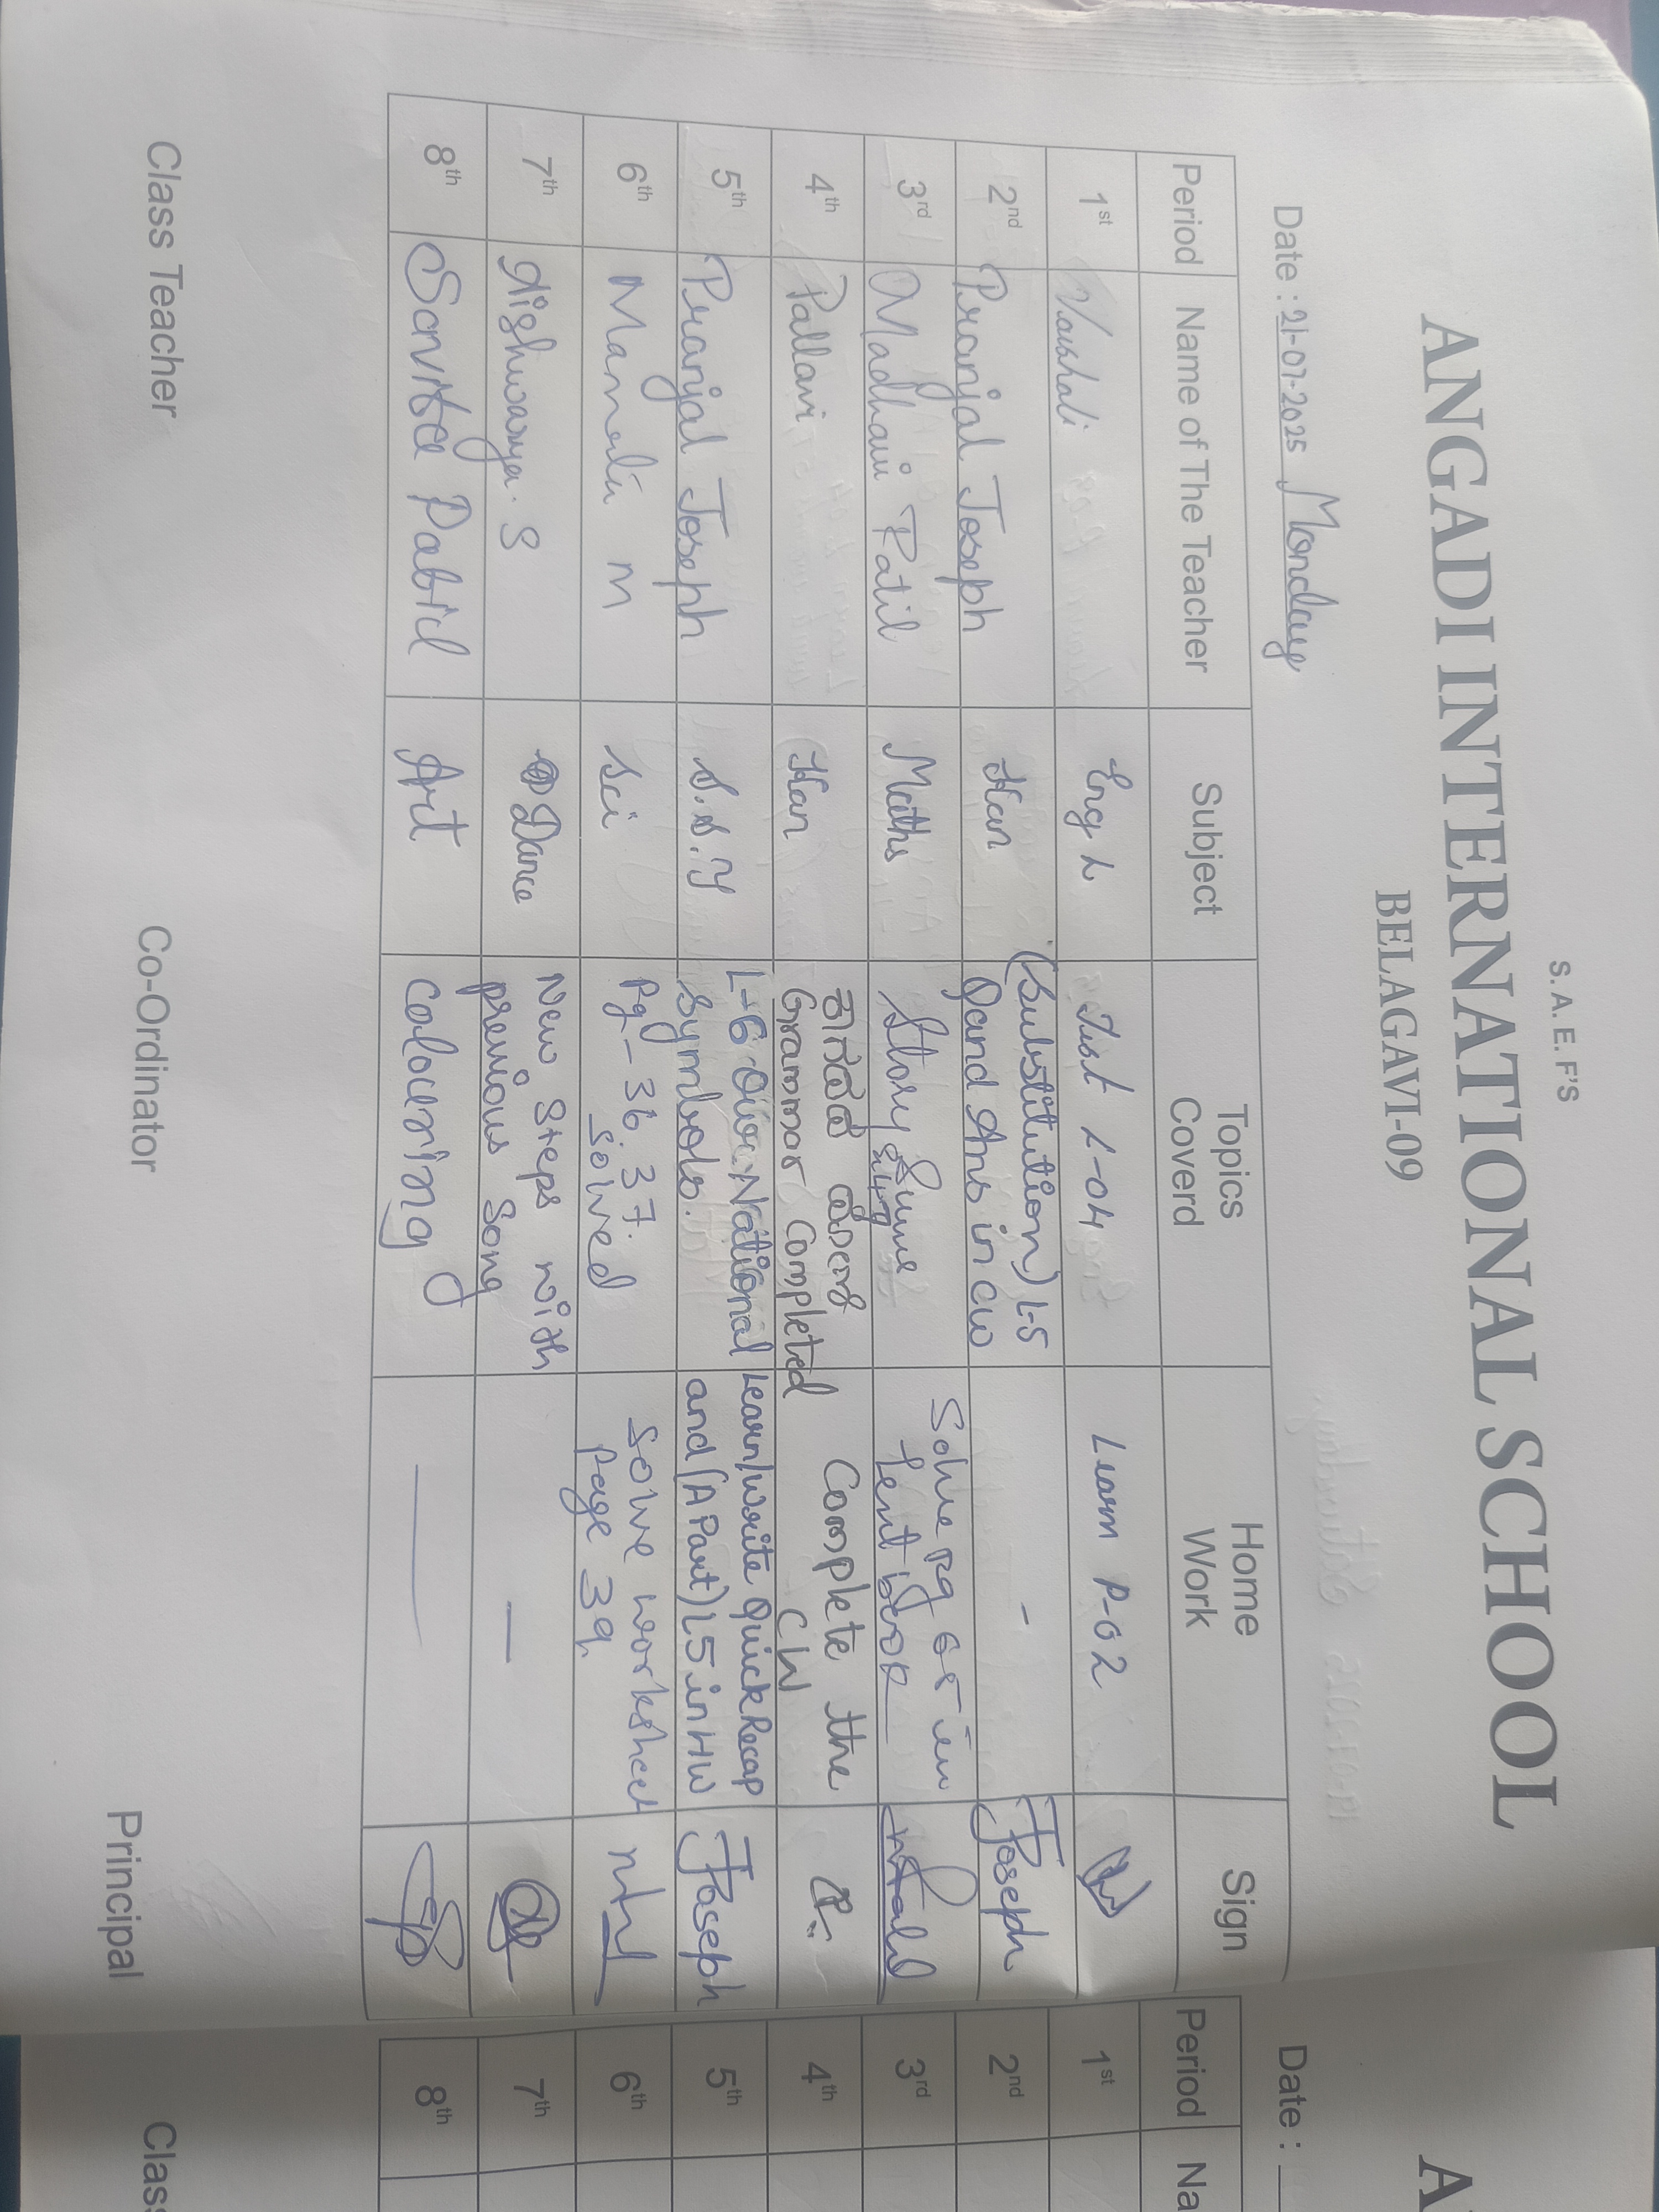 S. A. E. F'S
ANGADI INTERNATIONAL SCHOOL
BELAGAVI-09
Date : 21-07-2025 Monday
Period Name of The Teacher Subject Topics Coverd Home Work Sign
1st Vaishali Eng L Test L-04 Learn P-02
2nd Pranjal Joseph Kan (Substitution) L-5 - Joseph
Q and Ans in CW
3rd Madhavi Patil Maths Story Sums Solve pg 65 in
text book
4th Pallavi Kan Complete the
Grammar Completed CW
5th Pranjal Joseph S.S.T L-6 Our National Learn/write Quick Recap Joseph
Symbols. and (A Part) L5 in HW
6th Mamata M Sci Pg - 36. 37. Solve worksheet
Solved Page 39.
7th Aishwarya. S Dance New Steps with —
previous Song
8th Savita Patil Art Colouring —
Class Teacher Co-Ordinator Principal
Date :
Period Na
1st
2nd
3rd
4th
5th
6th
7th
8th
Clas
A